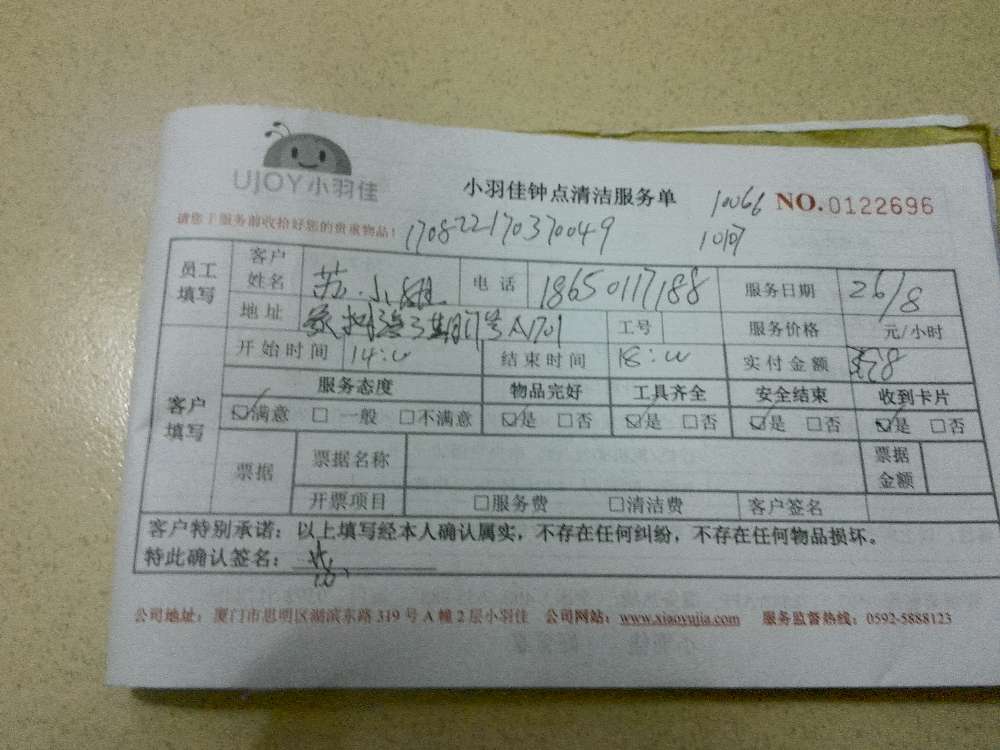 UJOY小羽佳
小羽佳钟点清洁服务单
10066
NO.0122696
请您于服务前收拾好您的贵重物品!
170822170370049
员工填写
客户姓名 苏小姐 电话 18650117188 服务日期 26/8
地址 A1701 工号 服务价格 元/小时
开始时间 14:00 结束时间 18:00 实付金额
客户填写
服务态度 物品完好 工具齐全 安全结束 收到卡片
☑满意 □一般 □不满意 ☑是 □否 ☑是 □否 ☑是 □否 ☑是 □否
票据 票据名称 票据金额
开票项目 □服务费 □清洁费 客户签名
客户特别承诺:以上填写经本人确认属实,不存在任何纠纷,不存在任何物品损坏。
特此确认签名:
公司地址:厦门市思明区湖滨东路319号A幢2层小羽佳 公司网站:www.xiaoyujia.com 服务监督热线:0592-5888123